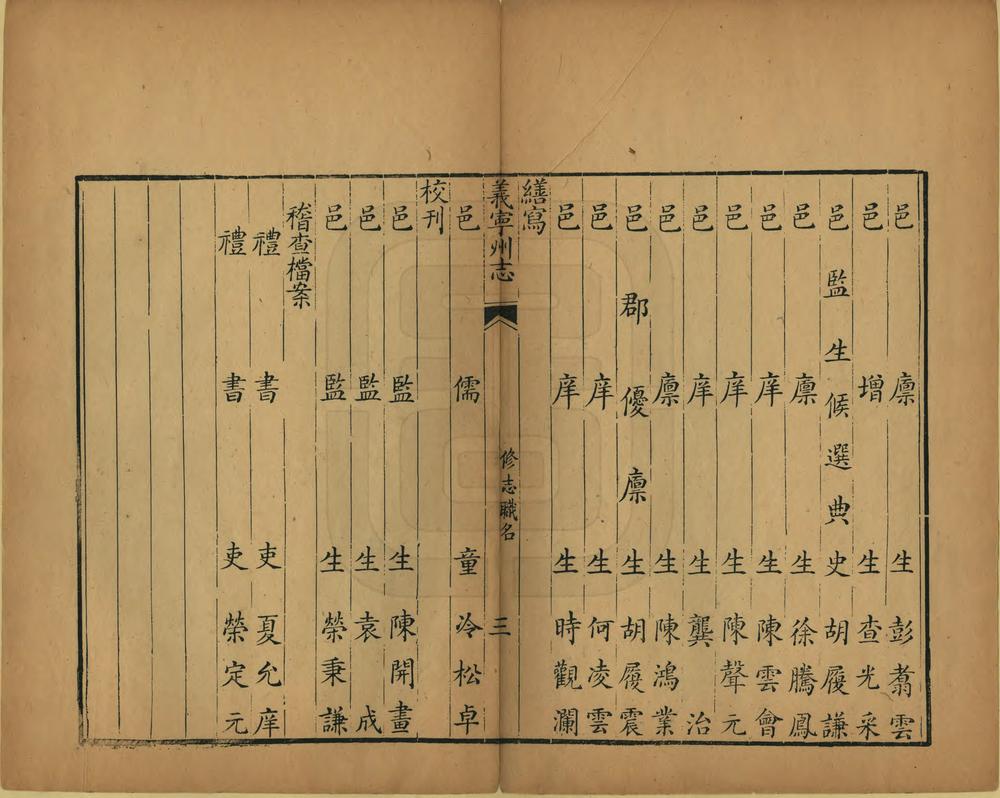 邑廩生彭翥雲
邑增生查光采
邑監生候選典史胡履謙
邑廩生徐騰鳳
邑庠生陳雲會
邑庠生陳聲元
邑庠生龔治
邑廩生陳鴻業
郡優廩生胡履震
邑庠生何凌雲
邑庠生時觀瀾
繕寫
義寧州志
修志職名
三
邑儒童冷松卓
校刊
邑監生陳開晝
邑監生袁成
邑監生榮秉謙
稽查檔案
禮書吏夏允庠
禮書吏榮定元